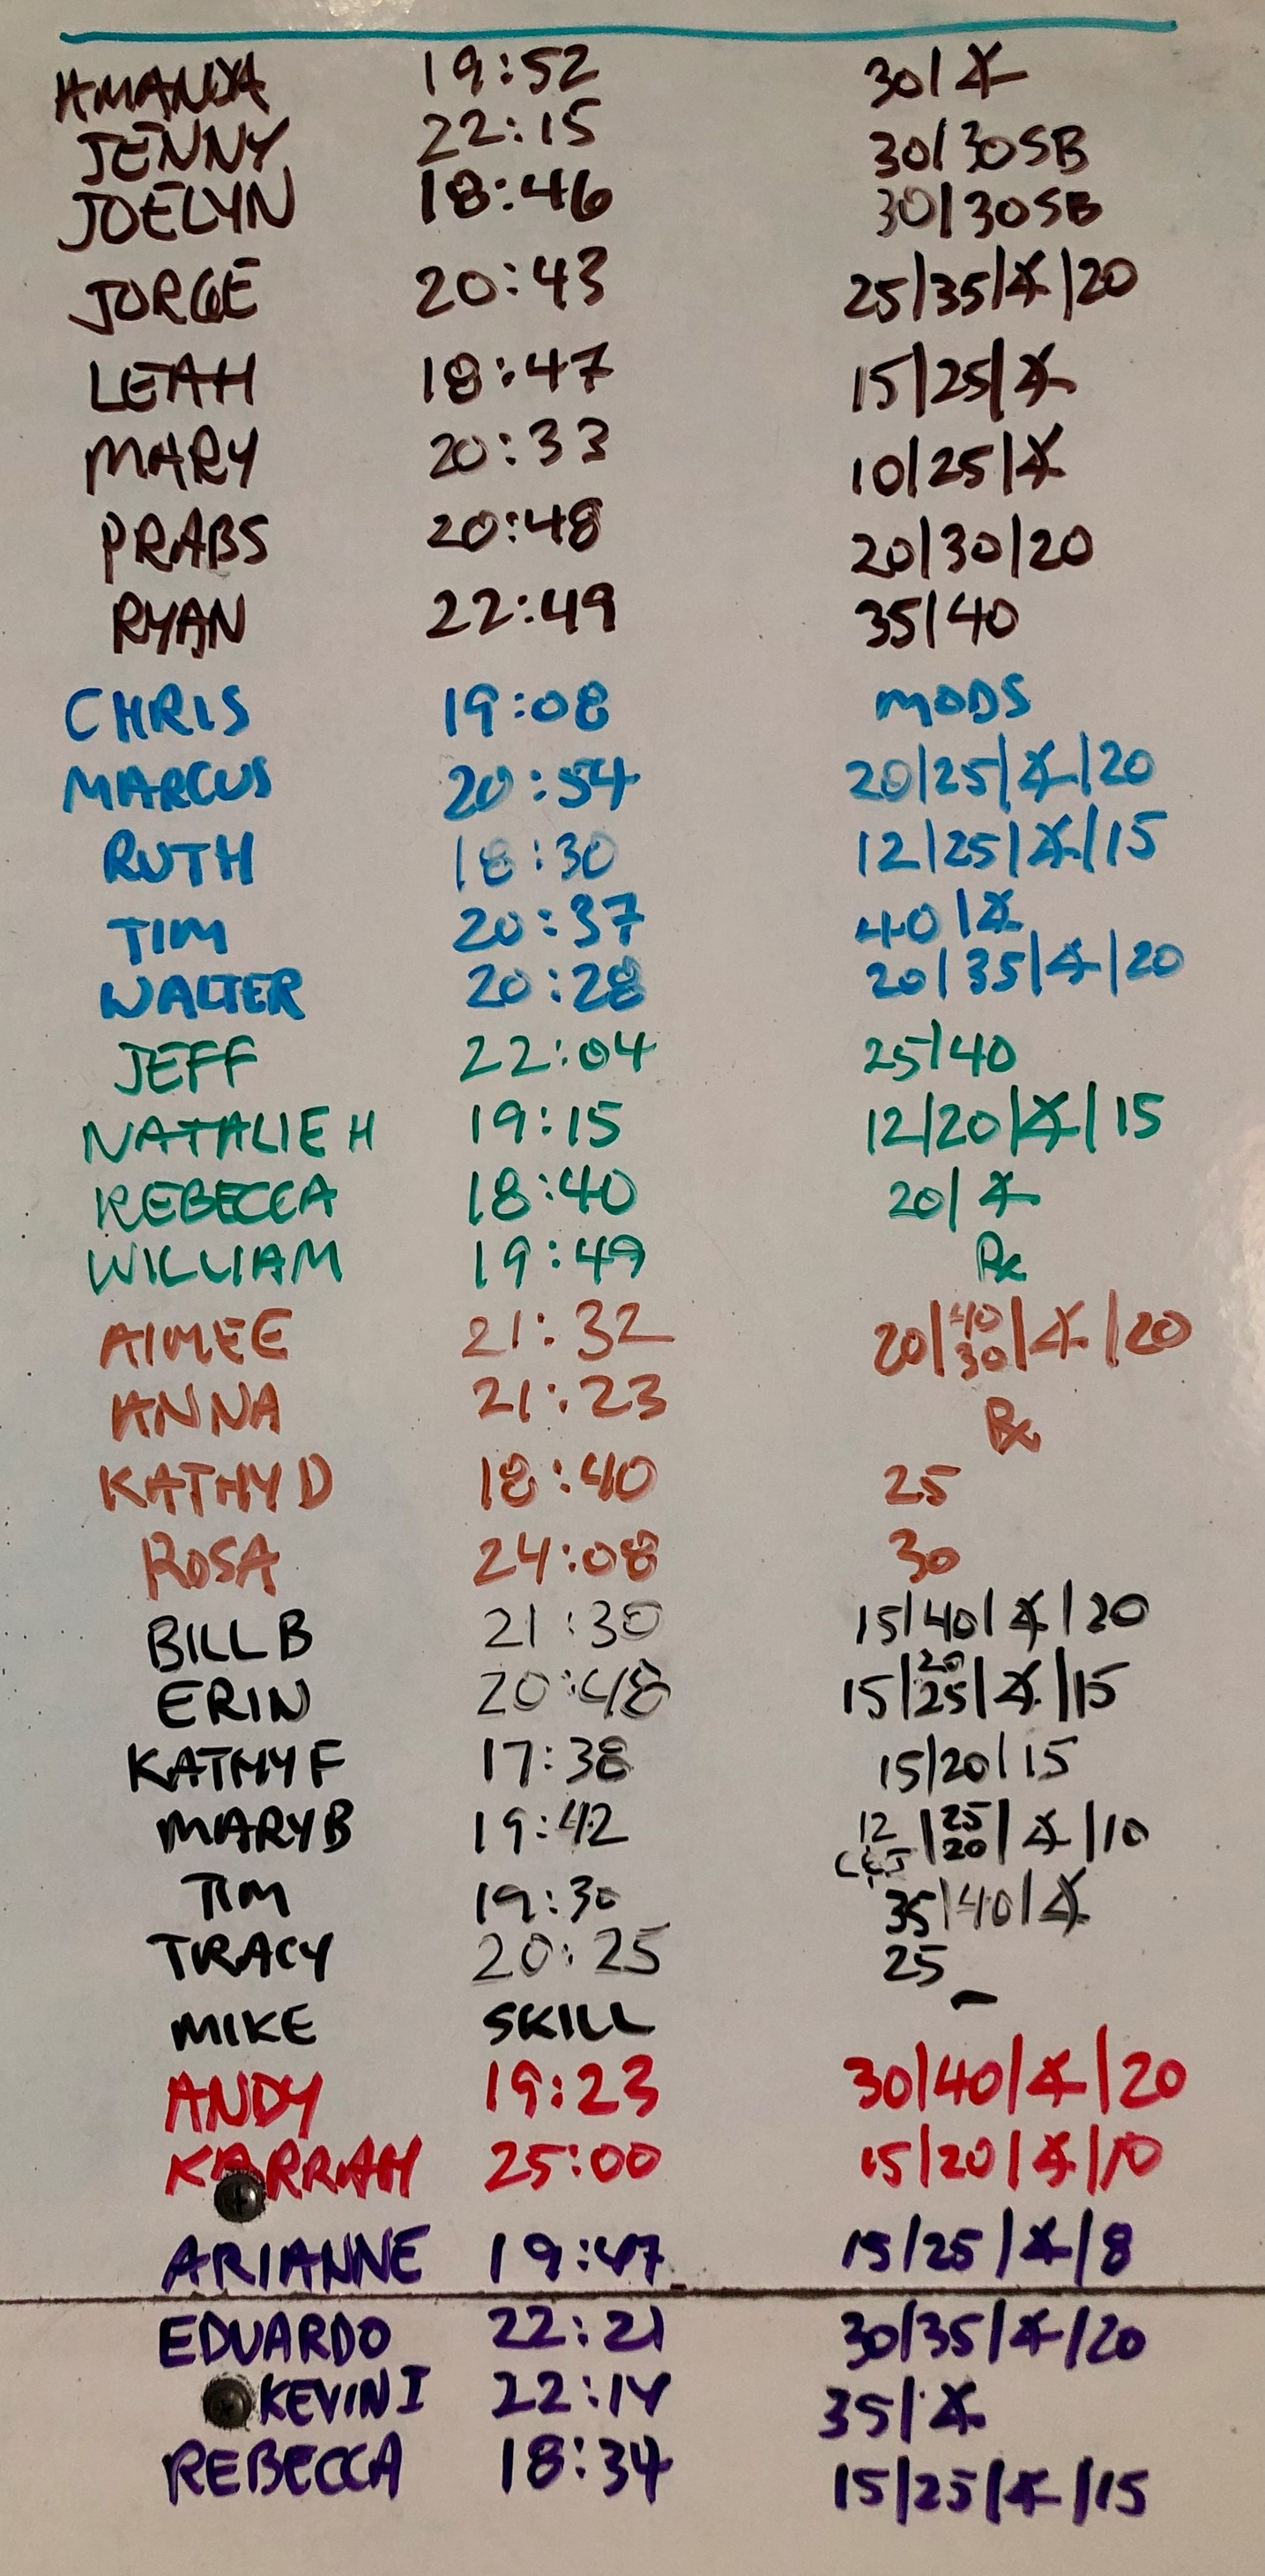 AMANDA 19:52 30/∡
JENNY 22:15 30/30SB
JOELYN 18:46 30/30SB
JORGE 20:43 25/35/∡/20
LEAH 18:47 15/25/∡
MARY 20:33 10/25/∡
PRABS 20:48 20/30/20
RYAN 22:49 35/40
CHRIS 19:08 MODS
MARCUS 20:54 20/25/∡/20
RUTH 18:30 12/25/∡/15
TIM 20:37 40/∡
WALTER 20:28 20/35/∡/20
JEFF 22:04 25/40
NATALIE H 19:15 12/20/∡/15
REBECCA 18:40 20/∡
WILLIAM 19:49 Rx
AIMEE 21:32 20/40 30/∡/20
ANNA 21:23 Rx
KATHY D 18:40 25
ROSA 24:08 30
BILL B 21:30 15/40/∡/20
ERIN 20:48 15/20 25/∡/15
KATHY F 17:38 15/20/15
MARY B 19:42 12 C&J/25 20/∡/10
TIM 19:30 35/40/∡
TRACY 20:25 25
MIKE SKILL –
ANDY 19:23 30/40/∡/20
KARRAH 25:00 15/20/∡/10
ARIANNE 19:47 15/25/∡/8
EDUARDO 22:21 30/35/∡/20
KEVIN I 22:14 35/∡
REBECCA 18:34 15/25/∡/15